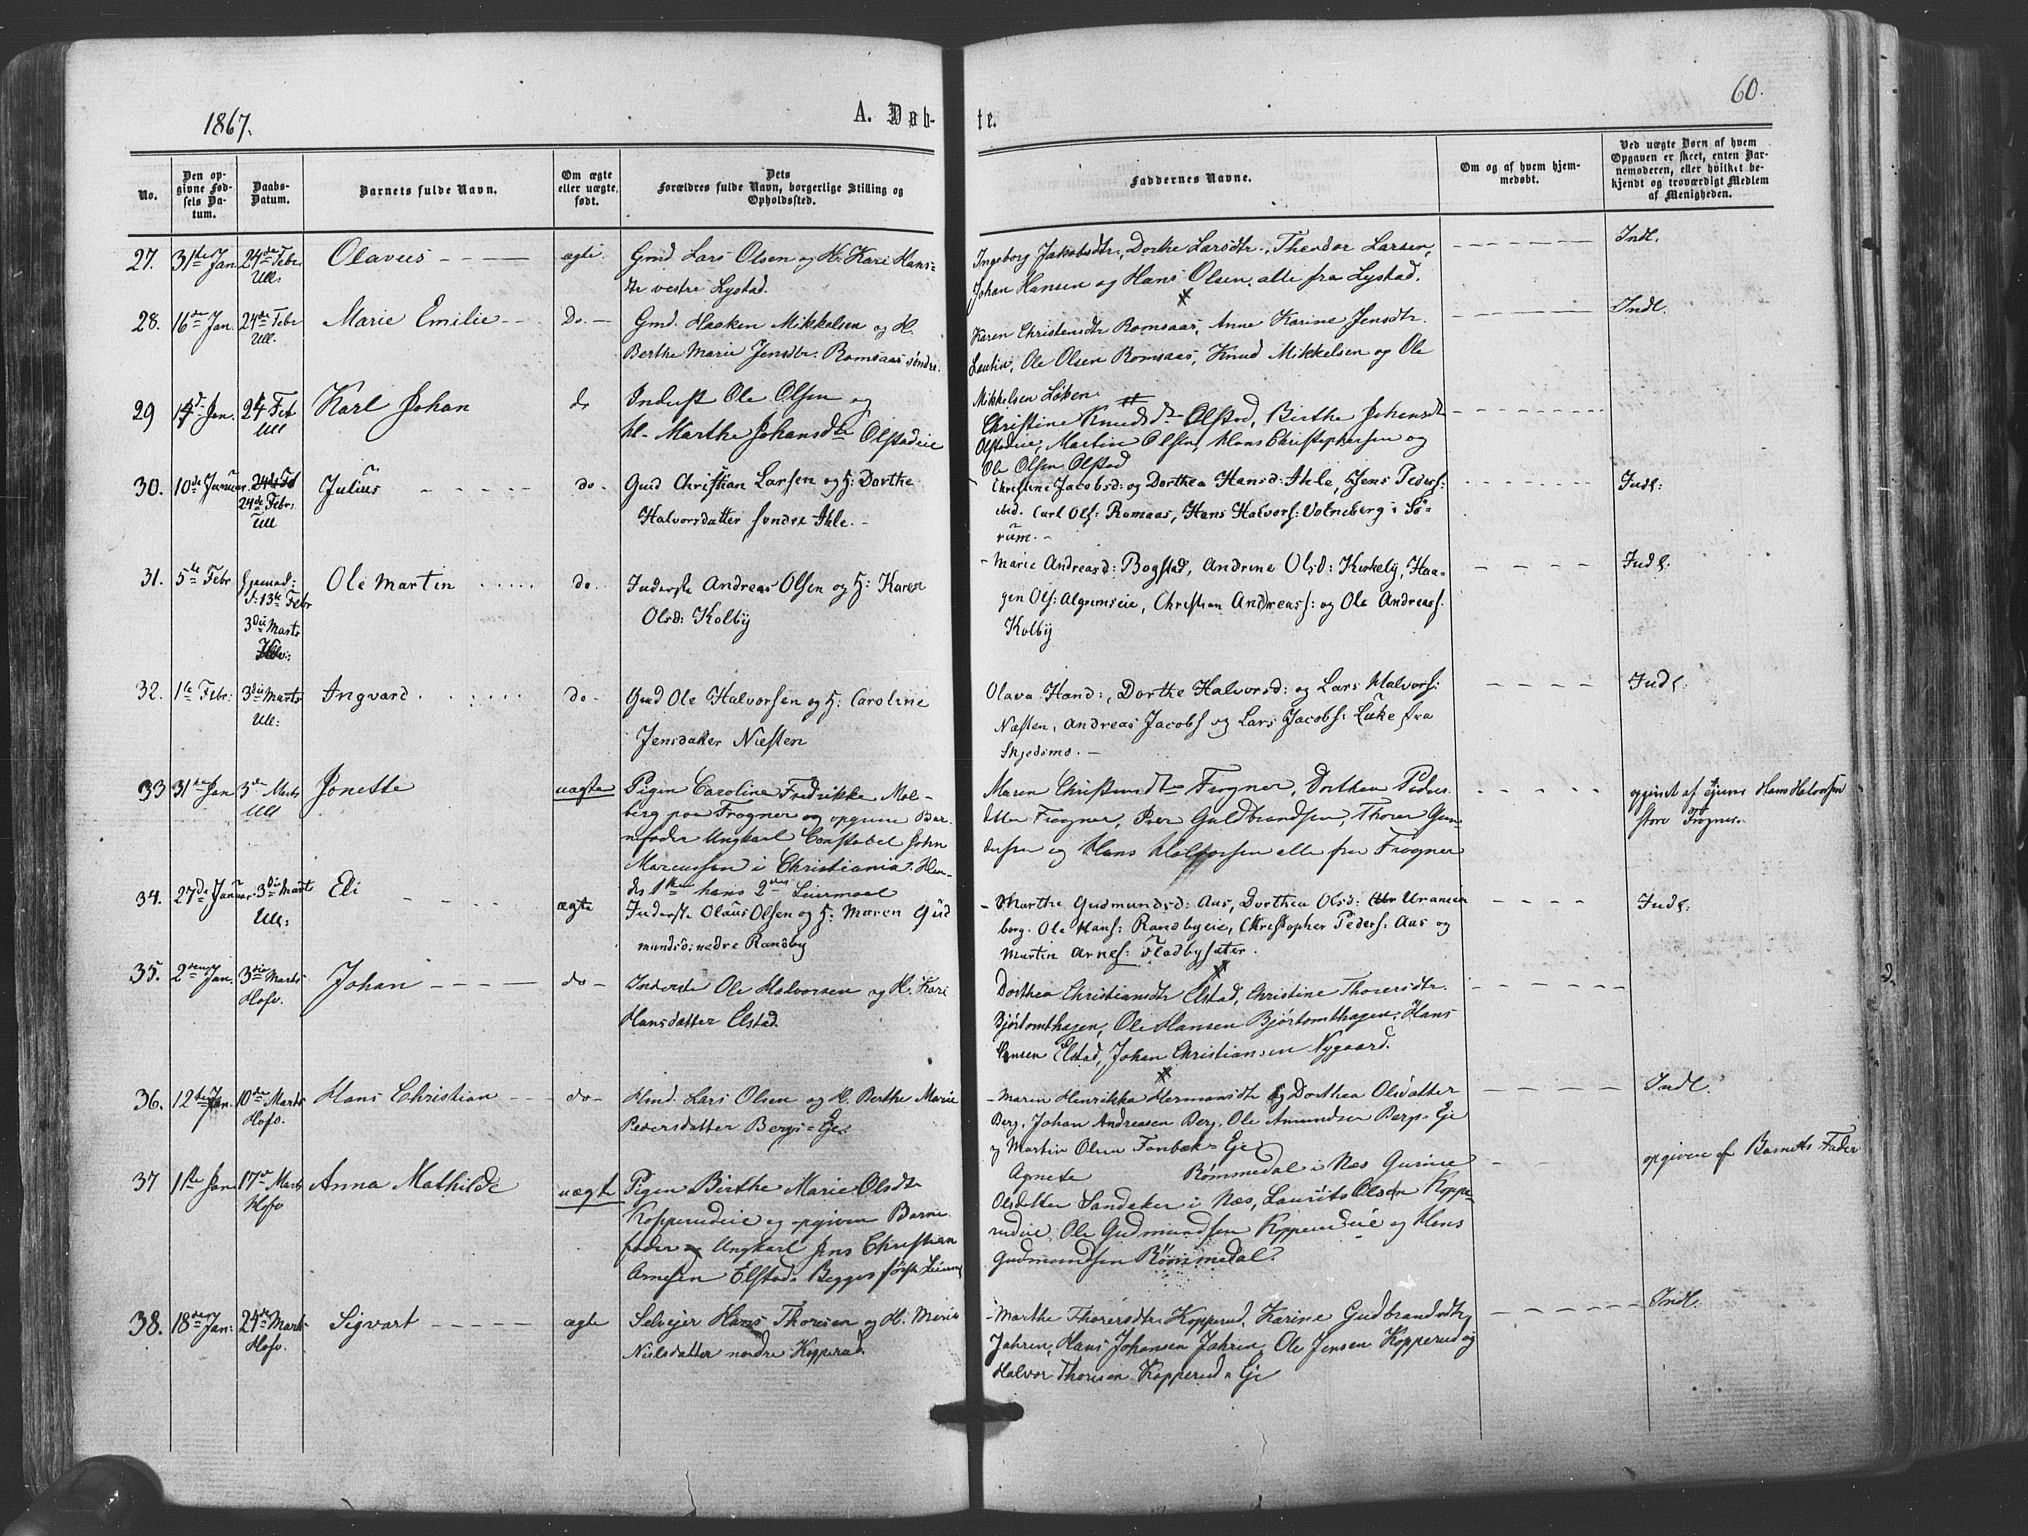 1867.
A. Døb-
te.
60.
No.
Den op-
givne Fød-
sels Da-
tum.
Daabs-
Datum.
Barnets fulde Navn.
Om ægte
eller uægte
født.
Dets
Forældres fulde Navn, borgerlige Stilling og
Opholdssted.
Faddernes Navne.
Om og af hvem hjem-
medøbt.
Ved uægte Børn af hvem
Opgaven er skeet, enten Bar-
nemoderen, eller hvilket be-
kjendt og troværdigt Medlem
af Menigheden.
27. 31te Jan 24de Febr. Olavus ægte Gmd. Lars Olsen og H. Kari Hans-
Ull: dtr vestre Lystad.
Ingeborg Jakobsdtr., Dorthe Larsdtr., Theodor Larsen,
Johan Hansen og Hans Olsen, alle fra Lystad.
Indl.
28. 16de Jan. 24de Febr Marie Emilie Do. Gmd. Haaken Mikkelsen og H.
Ull. Berthe Marie Jensdtr. Romsaas søndre.
Karen Christensdtr Romsaas, Anne Karine Jensdtr.
Ole Olsen Romsaas, Knud Mikkelsen og Ole
Mikkelsen Løken.
Indl.
29 14d Jan. 24 Feb Karl Johan do Inderst Ole Olsen og
Ull H. Marthe Johansdtr Olstadeie
Christine Knudsdtr Olstad, Birthe Johansdt
Olstadeie, Martin Olsen, Hans Christophersen og
Ole Olsen Olstad
30. 10de Januar. 24de Feb Julius do. Gmd Christian Larsen og H: Dorthe
24de Febr: Halvorsdatter søndre Ihle.
Ull
Christine Jacobsd: og Dorthea Hansd: Ihle, Jens Peders:
ibid. Carl Ols: Romaas, Hans Halvors: Volneberg i Sö-
rum.
Indl:
31. 5te Febr Hjemmed: Ole Martin do. Inderste Andreas Olsen og H: Karen
d: 13de Febr Olsd: Kolby
3die Marts
Marie Andreasd: Bogstad, Andrine Olsd: Kirkeby, Haa-
gen Ols: Algrimseie, Christian Andreass: og Ole Andreass.
Kolby
Indl.
32. 1te Febr: 3die Marts Ingvard do Gmd Ole Halvorsen og H: Caroline
Ull: Jensdatter Næsten
Olava Hansd:, Dorthe Halvorsd: og Lars Halvors:
Næsten, Andreas Jacobs og Lars Jacobs: Lüke fra
Skjedsmo.
Indl:
33 31te Jan 3de Marts Jonette uægte Pigen Caroline Fredrikke Mol-
Ull berg paa Frogner og opgiven Bar-
nefader Ungkarl Constabel John
Marcussen i Christiania. Hen-
des 1ste hans 2det Leiermaal
Maren Christensdtr Frogner, Dorthea Peders
datter Frogner, Peer Guldbrandsen, Thorer Gun-
dersen og Hans Halvorsen alle fra Frogner
opgivet af Hans Halvorsen
store Frogner.
34. 27de Januar 3die Marts Eli ægte Inderste Olaus Olsen og H: Maren Gud
Ull: mundsd: nedre Randby
Marthe Gudmundsd: Aas, Dorthea Olsd: Uranien
borg. Ole Hans: Randbyeie, Christopher Peders: Aas og
Martin Arnes: Fladbysæter.
Indl:
35. 2den Jan. 3die Marts Johan do Inderste Ole Halvorsen og H. Kari
Hofv. Hansdatter Elstad.
Dorthea Christiansdtr Elstad, Christine Thorersdtr.
Bjørtomthagen, Ole Hansen Bjørtomthagen, Hans
Hansen Elstad, Johan Christiansen Nygaard.
36. 12te Jan. 10de Marts Hans Christian do Hmd. Lars Olsen og H. Berthe Marie
Hofv. Pedersdatter Bergs-Eje
Maren Henrikka Hermansdtr og Dorthea Olsdatter
Berg, Johan Andreasen Berg, Ole Amundsen Bergs-Eje
og Martin Olsen Fonbæk-Eje
Indl.
37 11te Jan 17de Marts Anna Mathilde uægte Pigen Birthe Marie Olsdtr
Hofv Kopperudeie og opgiven Barne
fader Ungkarl Jens Christian
Arnesen Elstad. Begges første Leierm
Agnete Rømmedal i Næs Gurine
Olsdatter Sandaker i Næs, Laurits Olsen Koppe-
rudeie, Ole Gudmundsen Kopperudeie og Hans
Gudmundsen Rømmedal.
opgiven af Barnets Fader
38. 18de Jan: 24de Marts Sigvart ægte Selvejer Hans Thoresen og H. Marie
Hofv. Nielsdatter nordre Kopperud.
Marthe Thorersdtr Kopperud, Karine Gudbrandsdtr,
Jahren, Hans Johansen Jahren, Ole Jensen Kopperud og
Halvor Thoresen Kopperuds Eje
Indl.